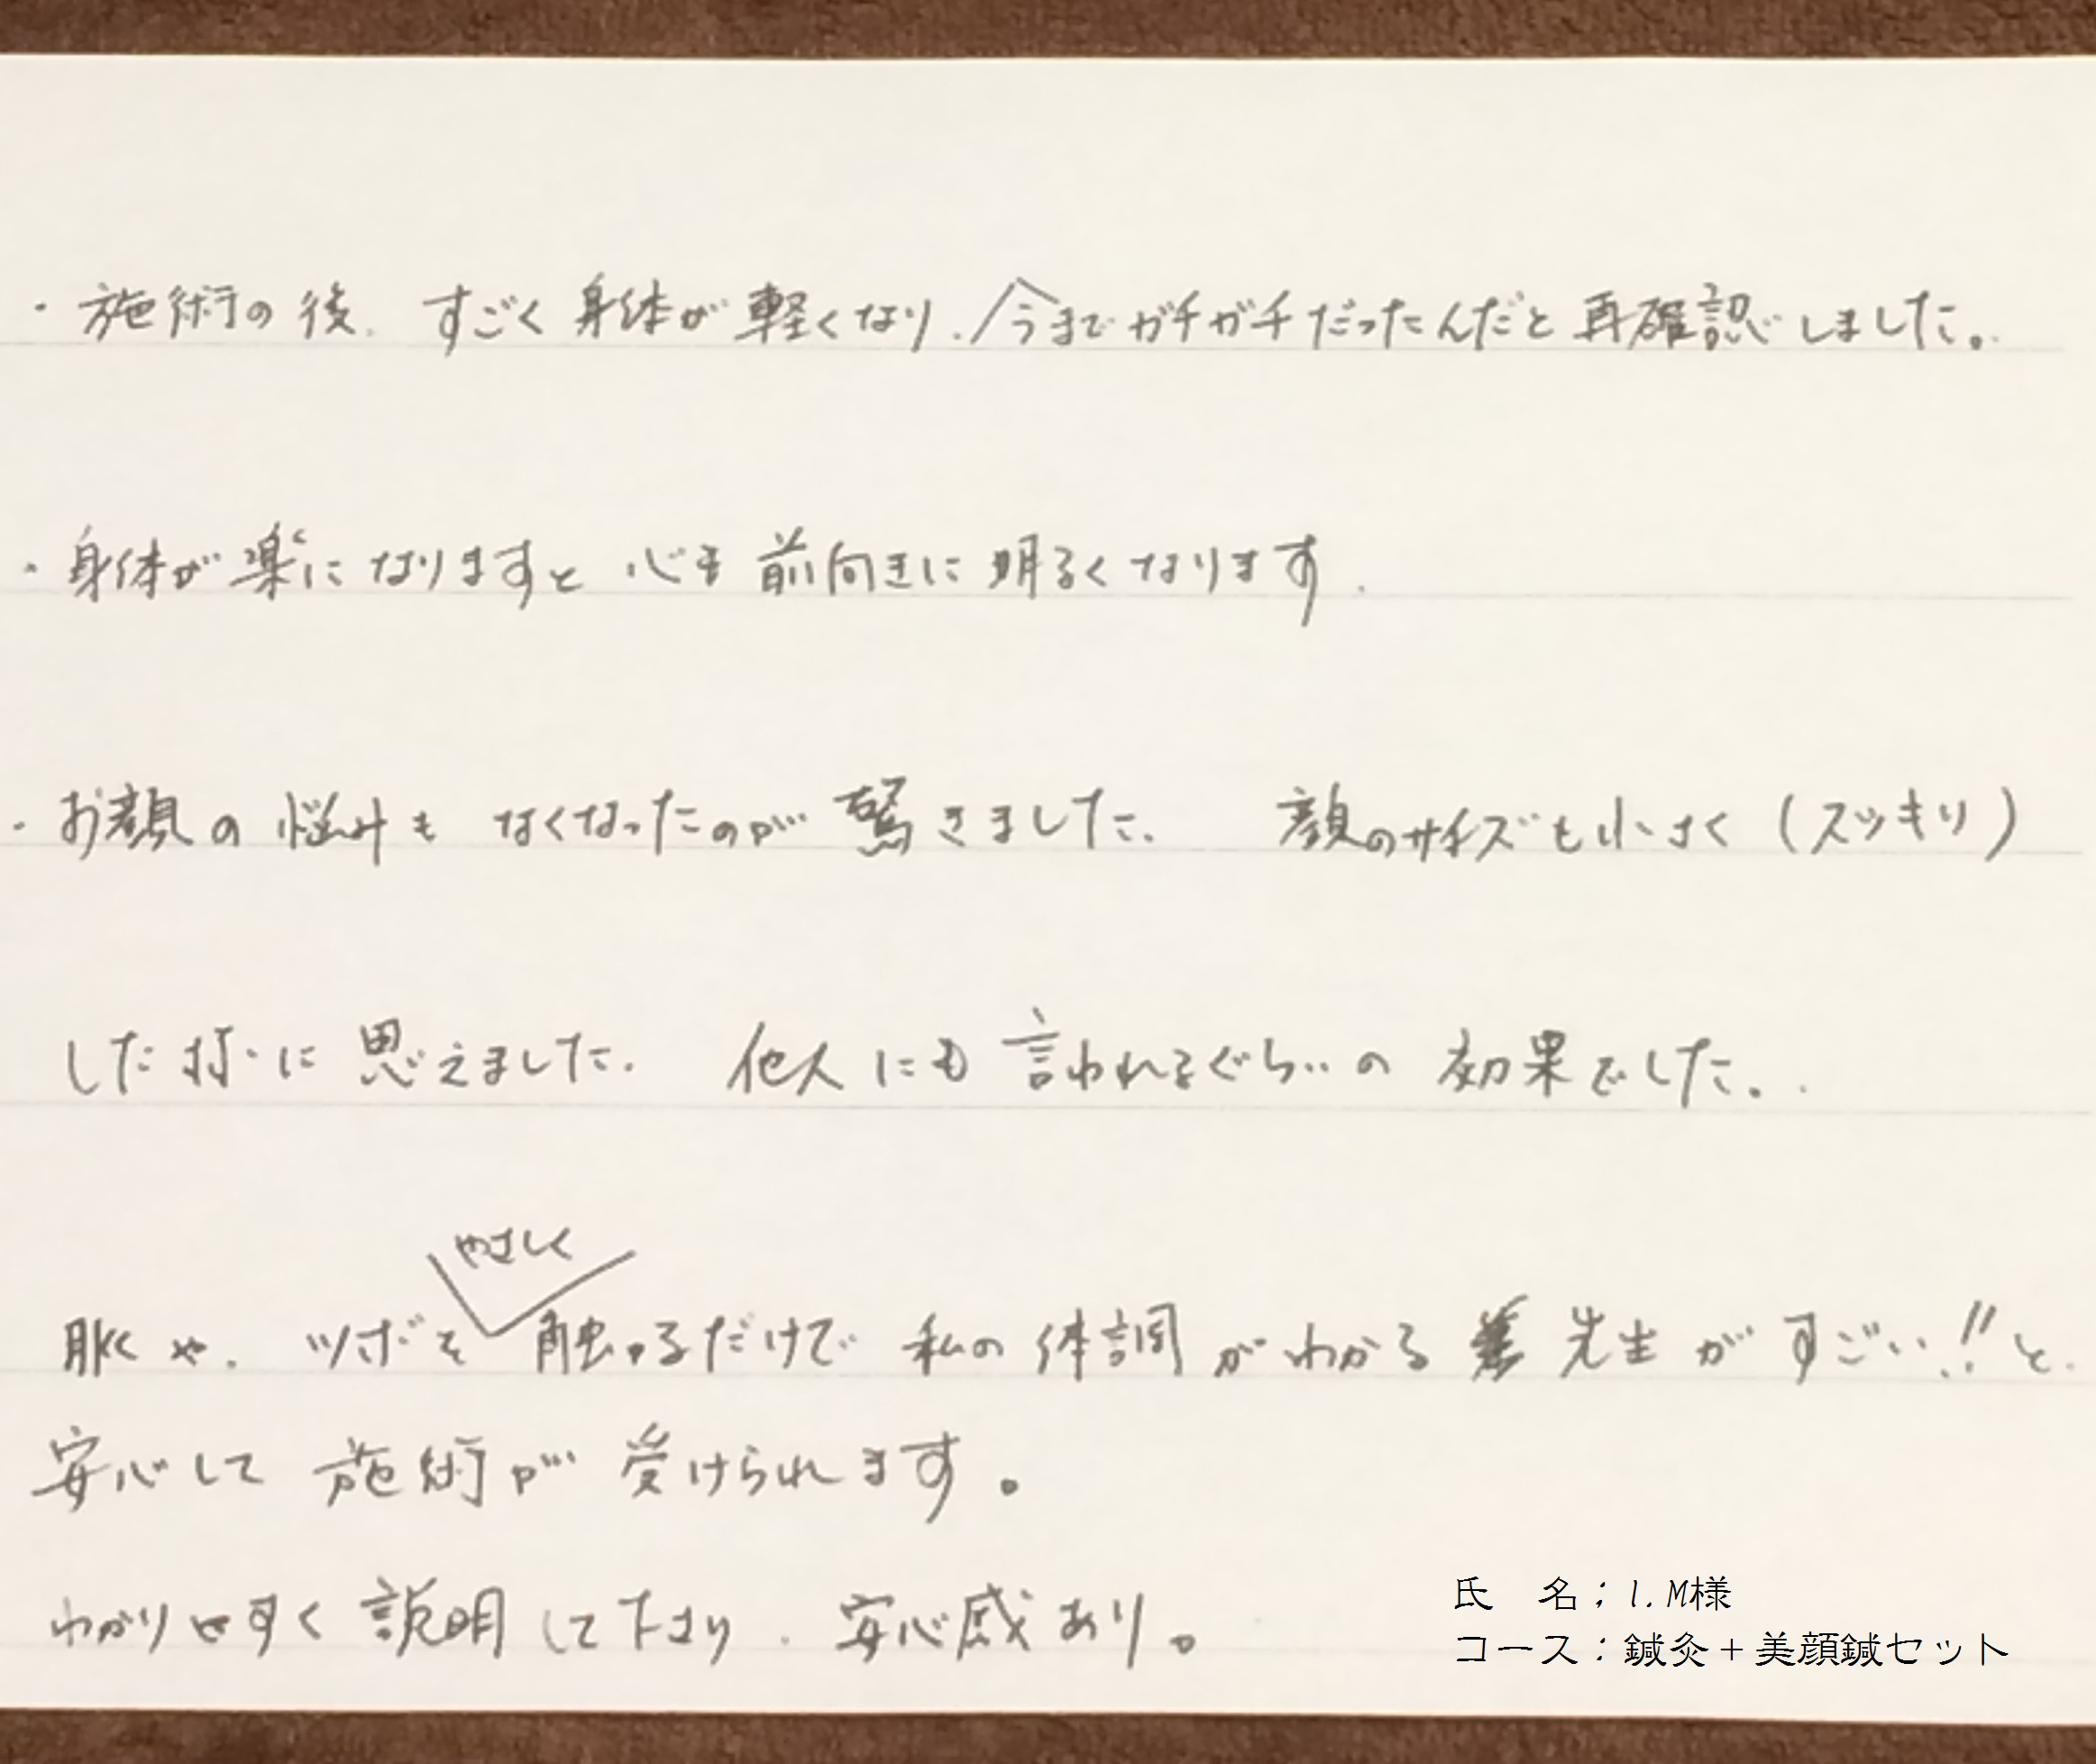 ・施術の後、すごく身体が軽くなり、/今までガチガチだったんだと再確認しました。
・身体が楽になりますと 心も前向きに明るくなります.
・お顔の悩みも なくなったのが 驚きました. 顔のサイズも小さく(スッキリ)
した様に 思えました. 他人にも 言われるぐらいの 効果でした.
やさしく
脈や、ツボを触るだけで 私の体調がわかる 先生がすごい!!と.
安心して 施術が 受けられます。
わかりやすく説明して下さり、安心感あり。
氏　名；I.M様
コース：鍼灸＋美顔鍼セット